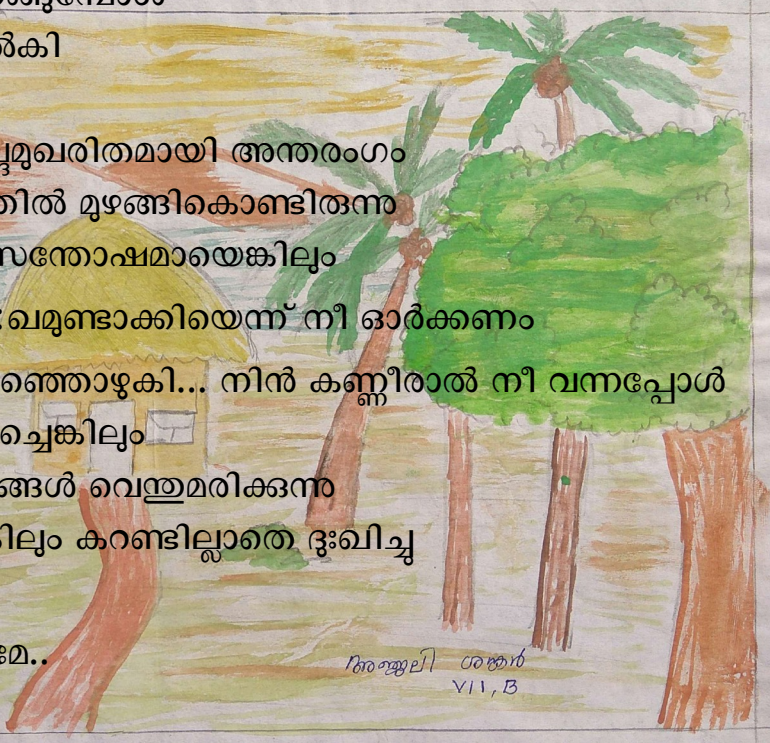 ൽകി
മുഖരിതമായി അന്തരംഗം
തിൽ മുഴങ്ങികൊണ്ടിരുന്നു
സന്തോഷമായെങ്കിലും
ഃഖമുണ്ടാക്കിയെന്ന് നീ ഓർക്കണം
ഞ്ഞൊഴുകി... നിൻ കണ്ണീരാൽ നീ വന്നപ്പോൾ
ച്ചെങ്കിലും
ങ്ങൾ വെന്തുമരിക്കുന്നു
ിലും കറണ്ടില്ലാതെ ദുഃഖിച്ചു
മേ..
അഞ്ജലി ശങ്കർ
VII, B